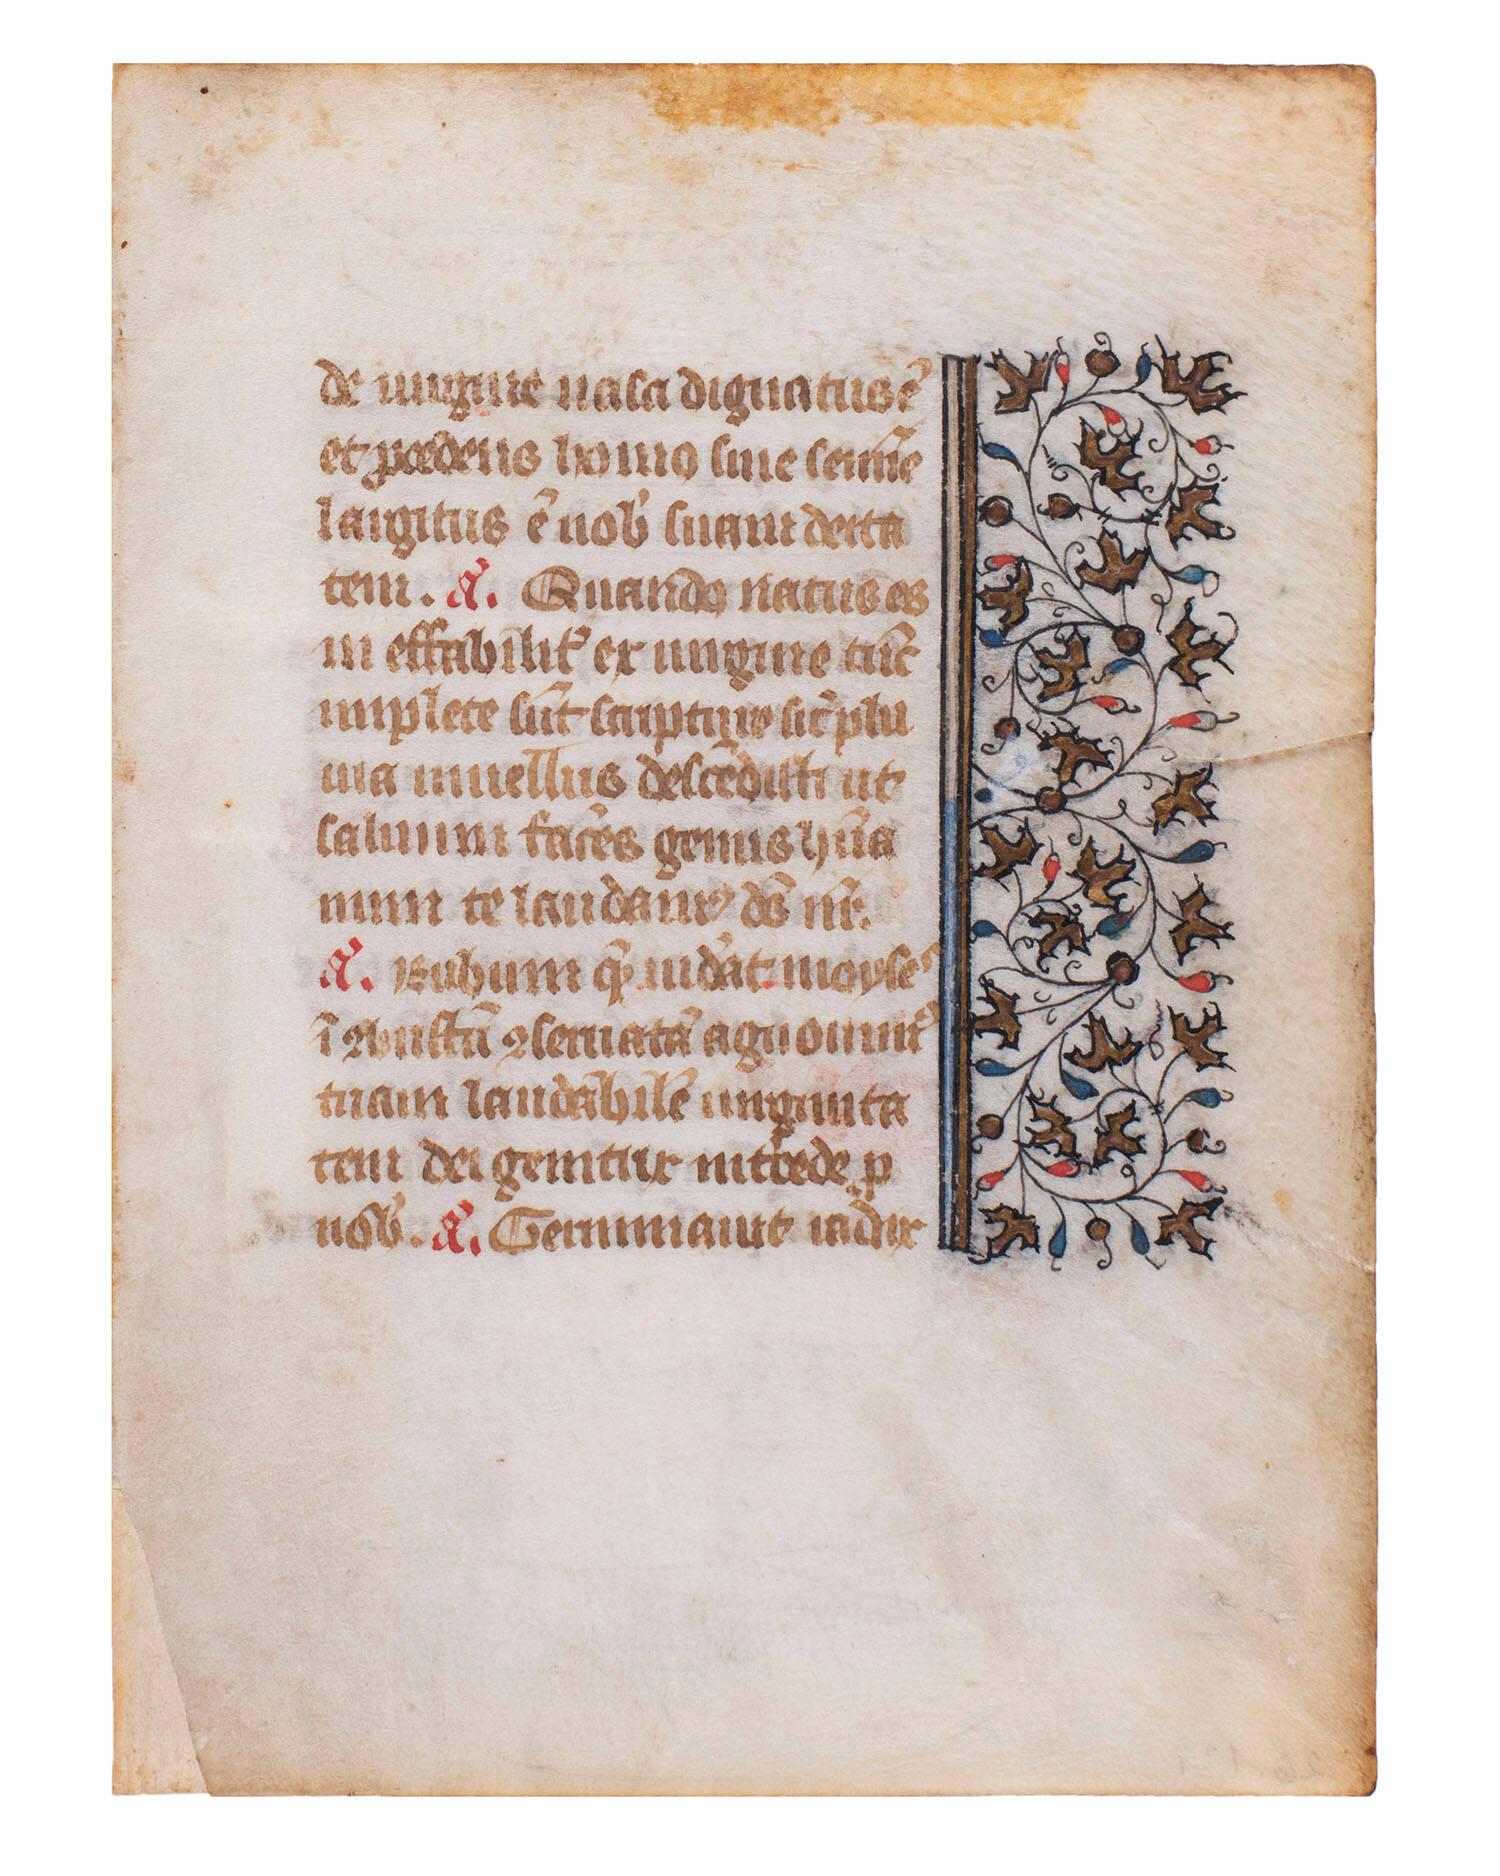 de uirgine nasci dignatus ē
et procedens homo sine semīe
largitus ē nob' suam deita
tem. añ. Quando natus es
in effabilit' ex uirgine tūc
implete sūt scripture sic̄ plu
uia in uellus descēdisti ut
saluum facēs genus hūa
num te laudam' ds̄ nr̄.
añ. Rubum quē uid'at moyses
ī 9bustū 9seruatā agnouim'
tuam laudabilē uirginita
tem dei genitrix int'cede p
nob'. añ. Germinauit radix